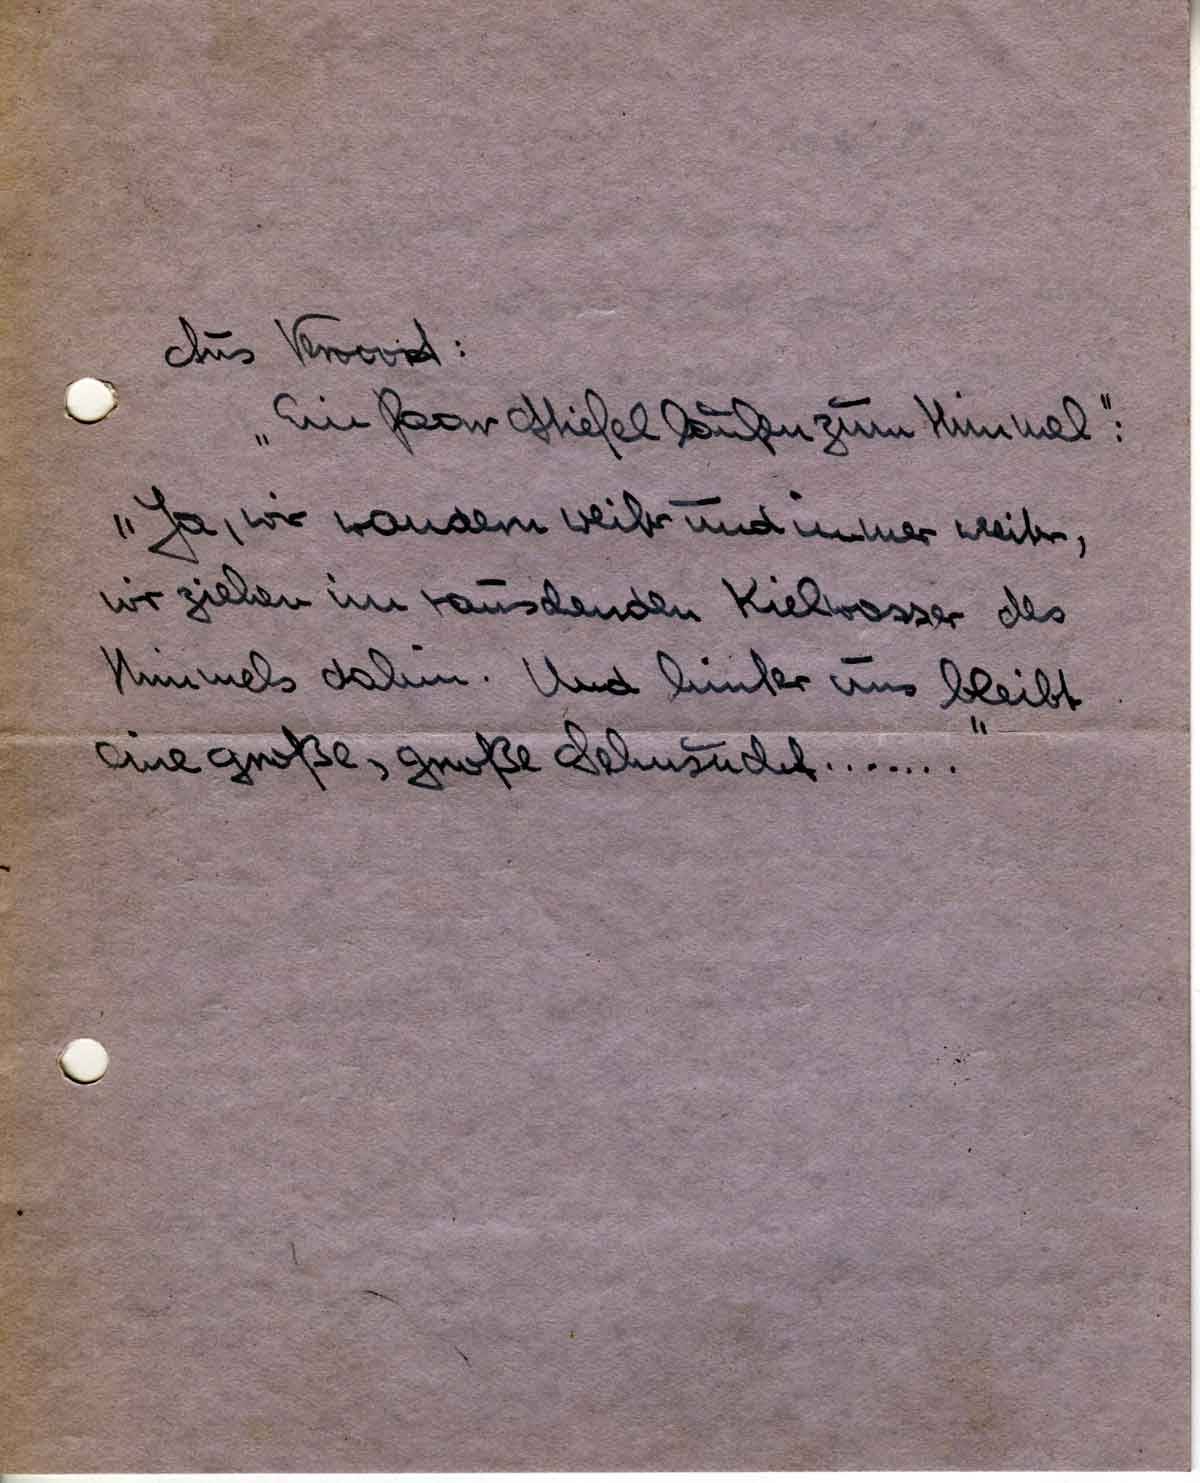 Aus
„Ein Paar Stiefel laufen zum Himmel":
„Ja, wir wandern weiter und immer weiter,
wir ziehen im rauschenden Kielwasser des
Himmels dahin. Und hinter uns bleibt
eine große, große Sehnsucht......."